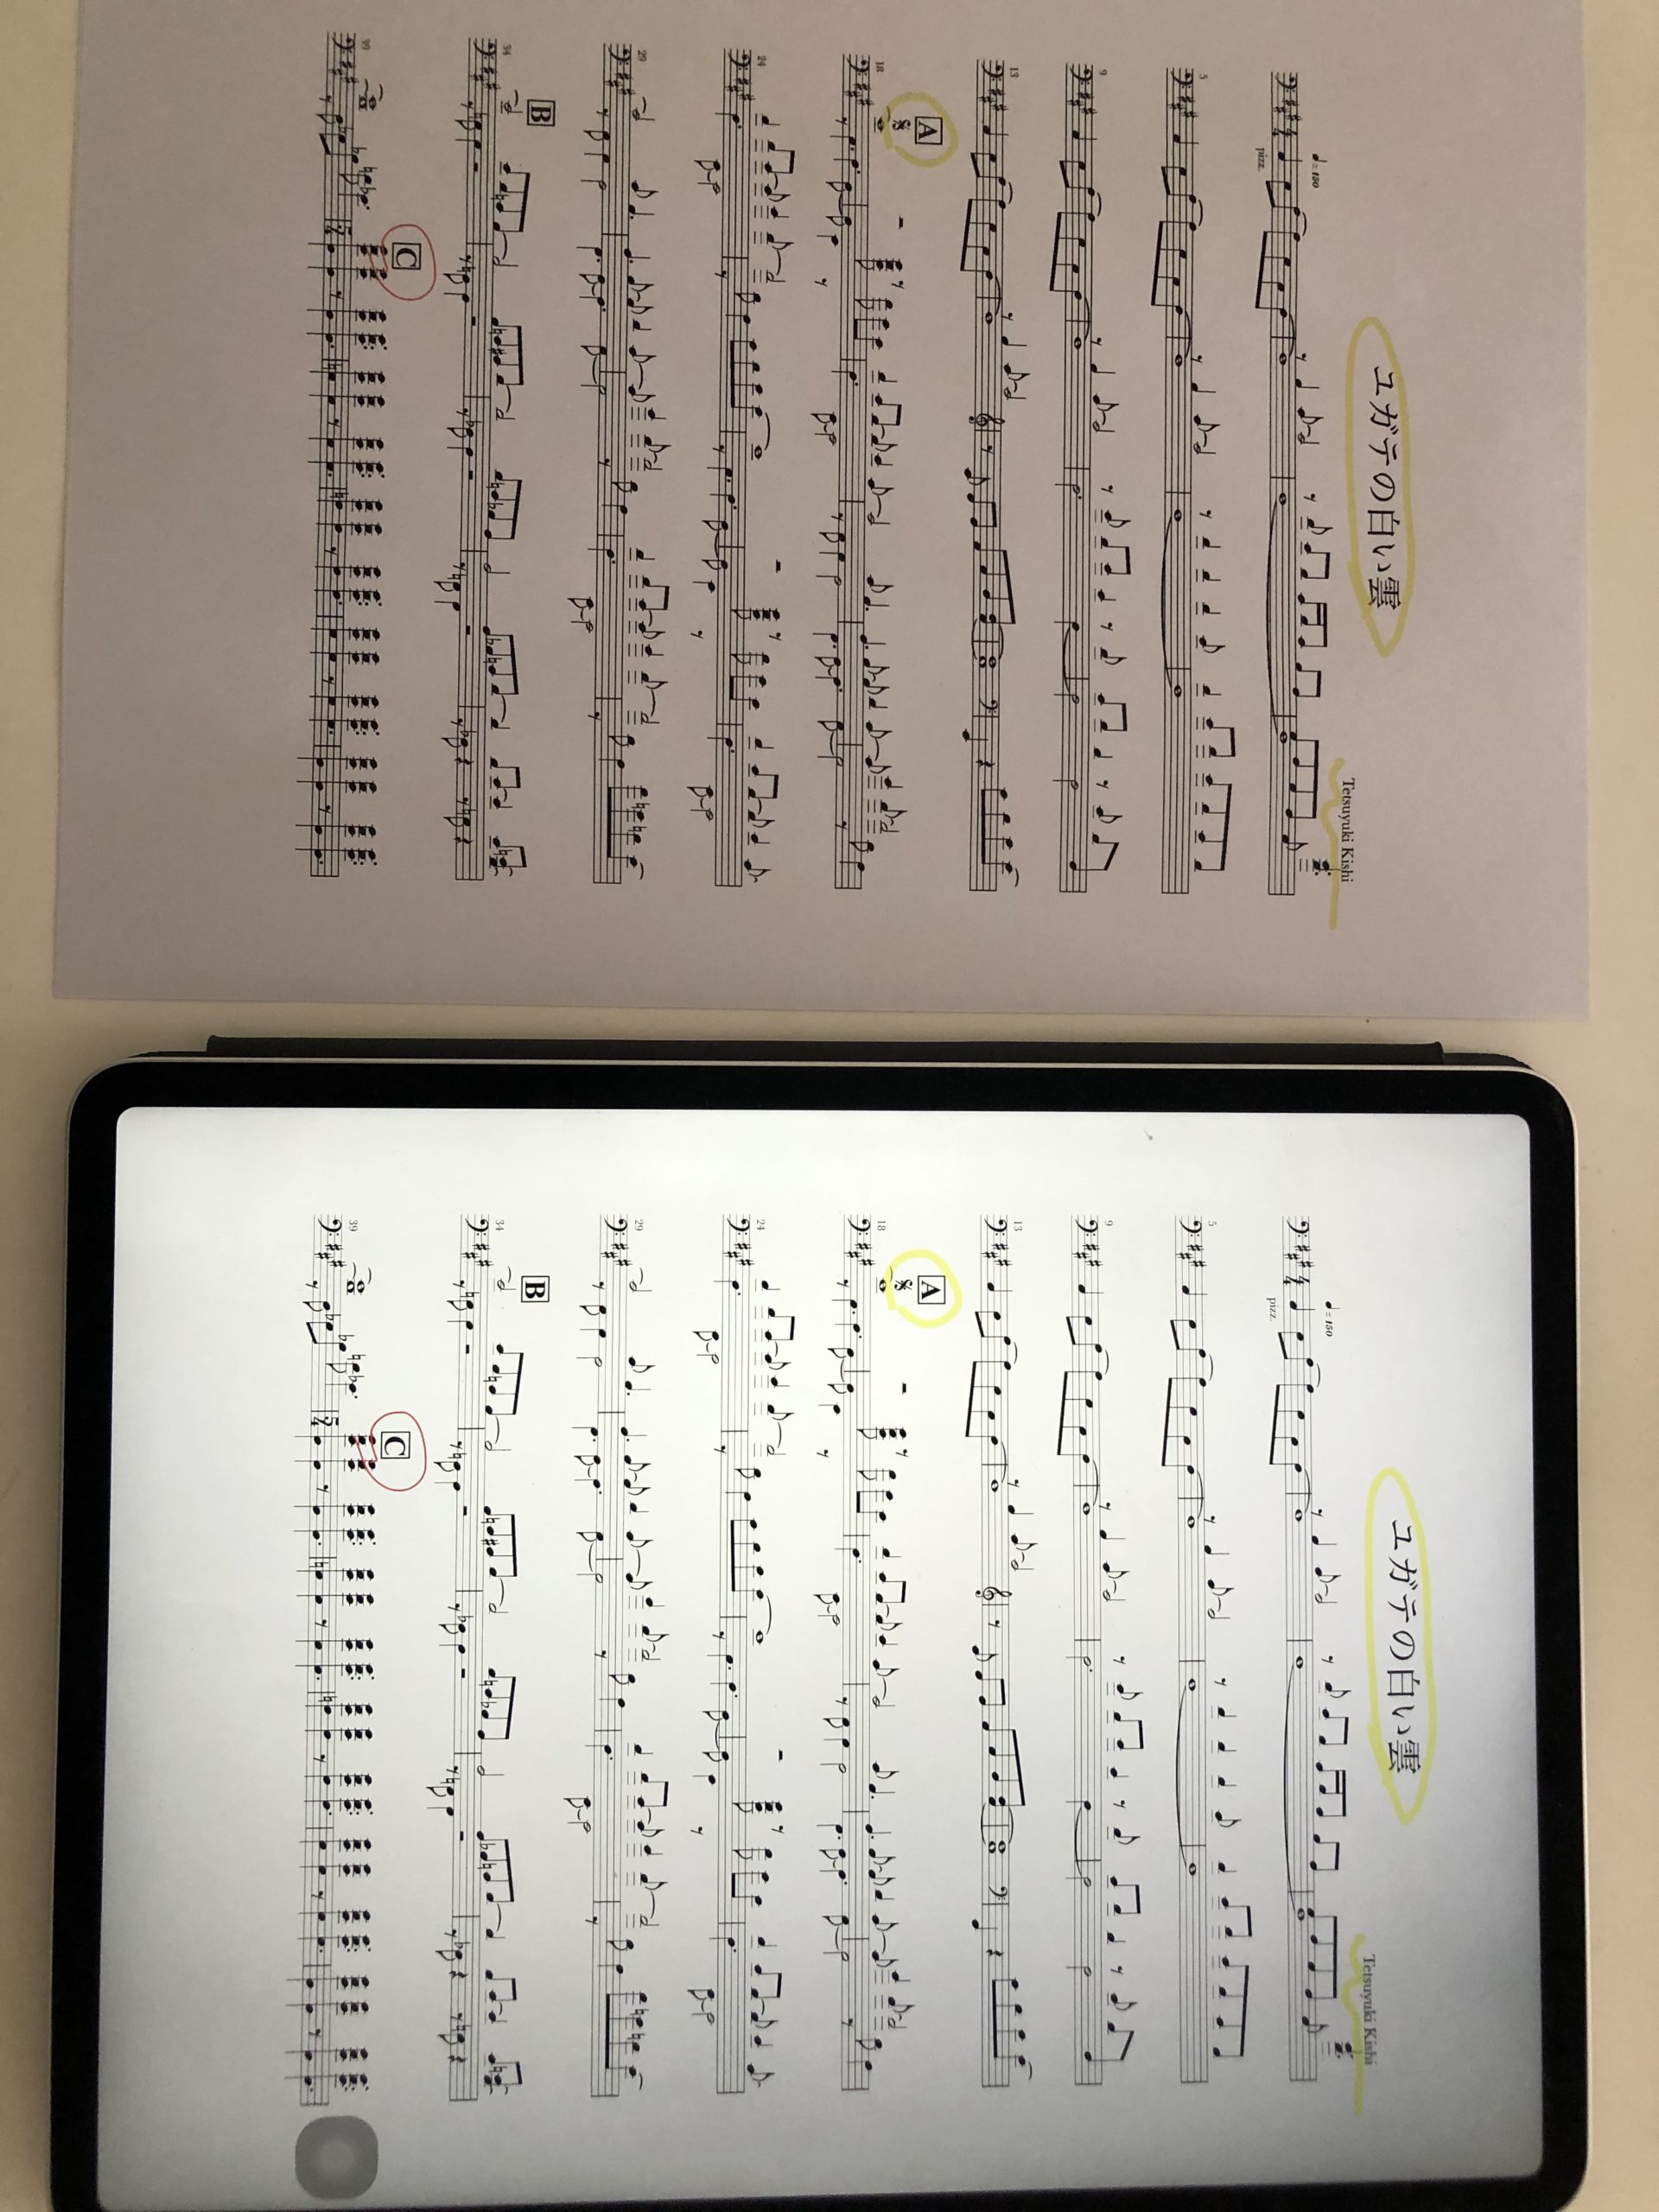 ユガテの白い雲
Tetsuyuki Kishi
♩= 150
pizz.
5
9
13
A
18
24
29
B
34
39
C
ユガテの白い雲
Tetsuyuki Kishi
♩= 150
pizz.
5
9
13
A
18
24
29
B
34
39
C